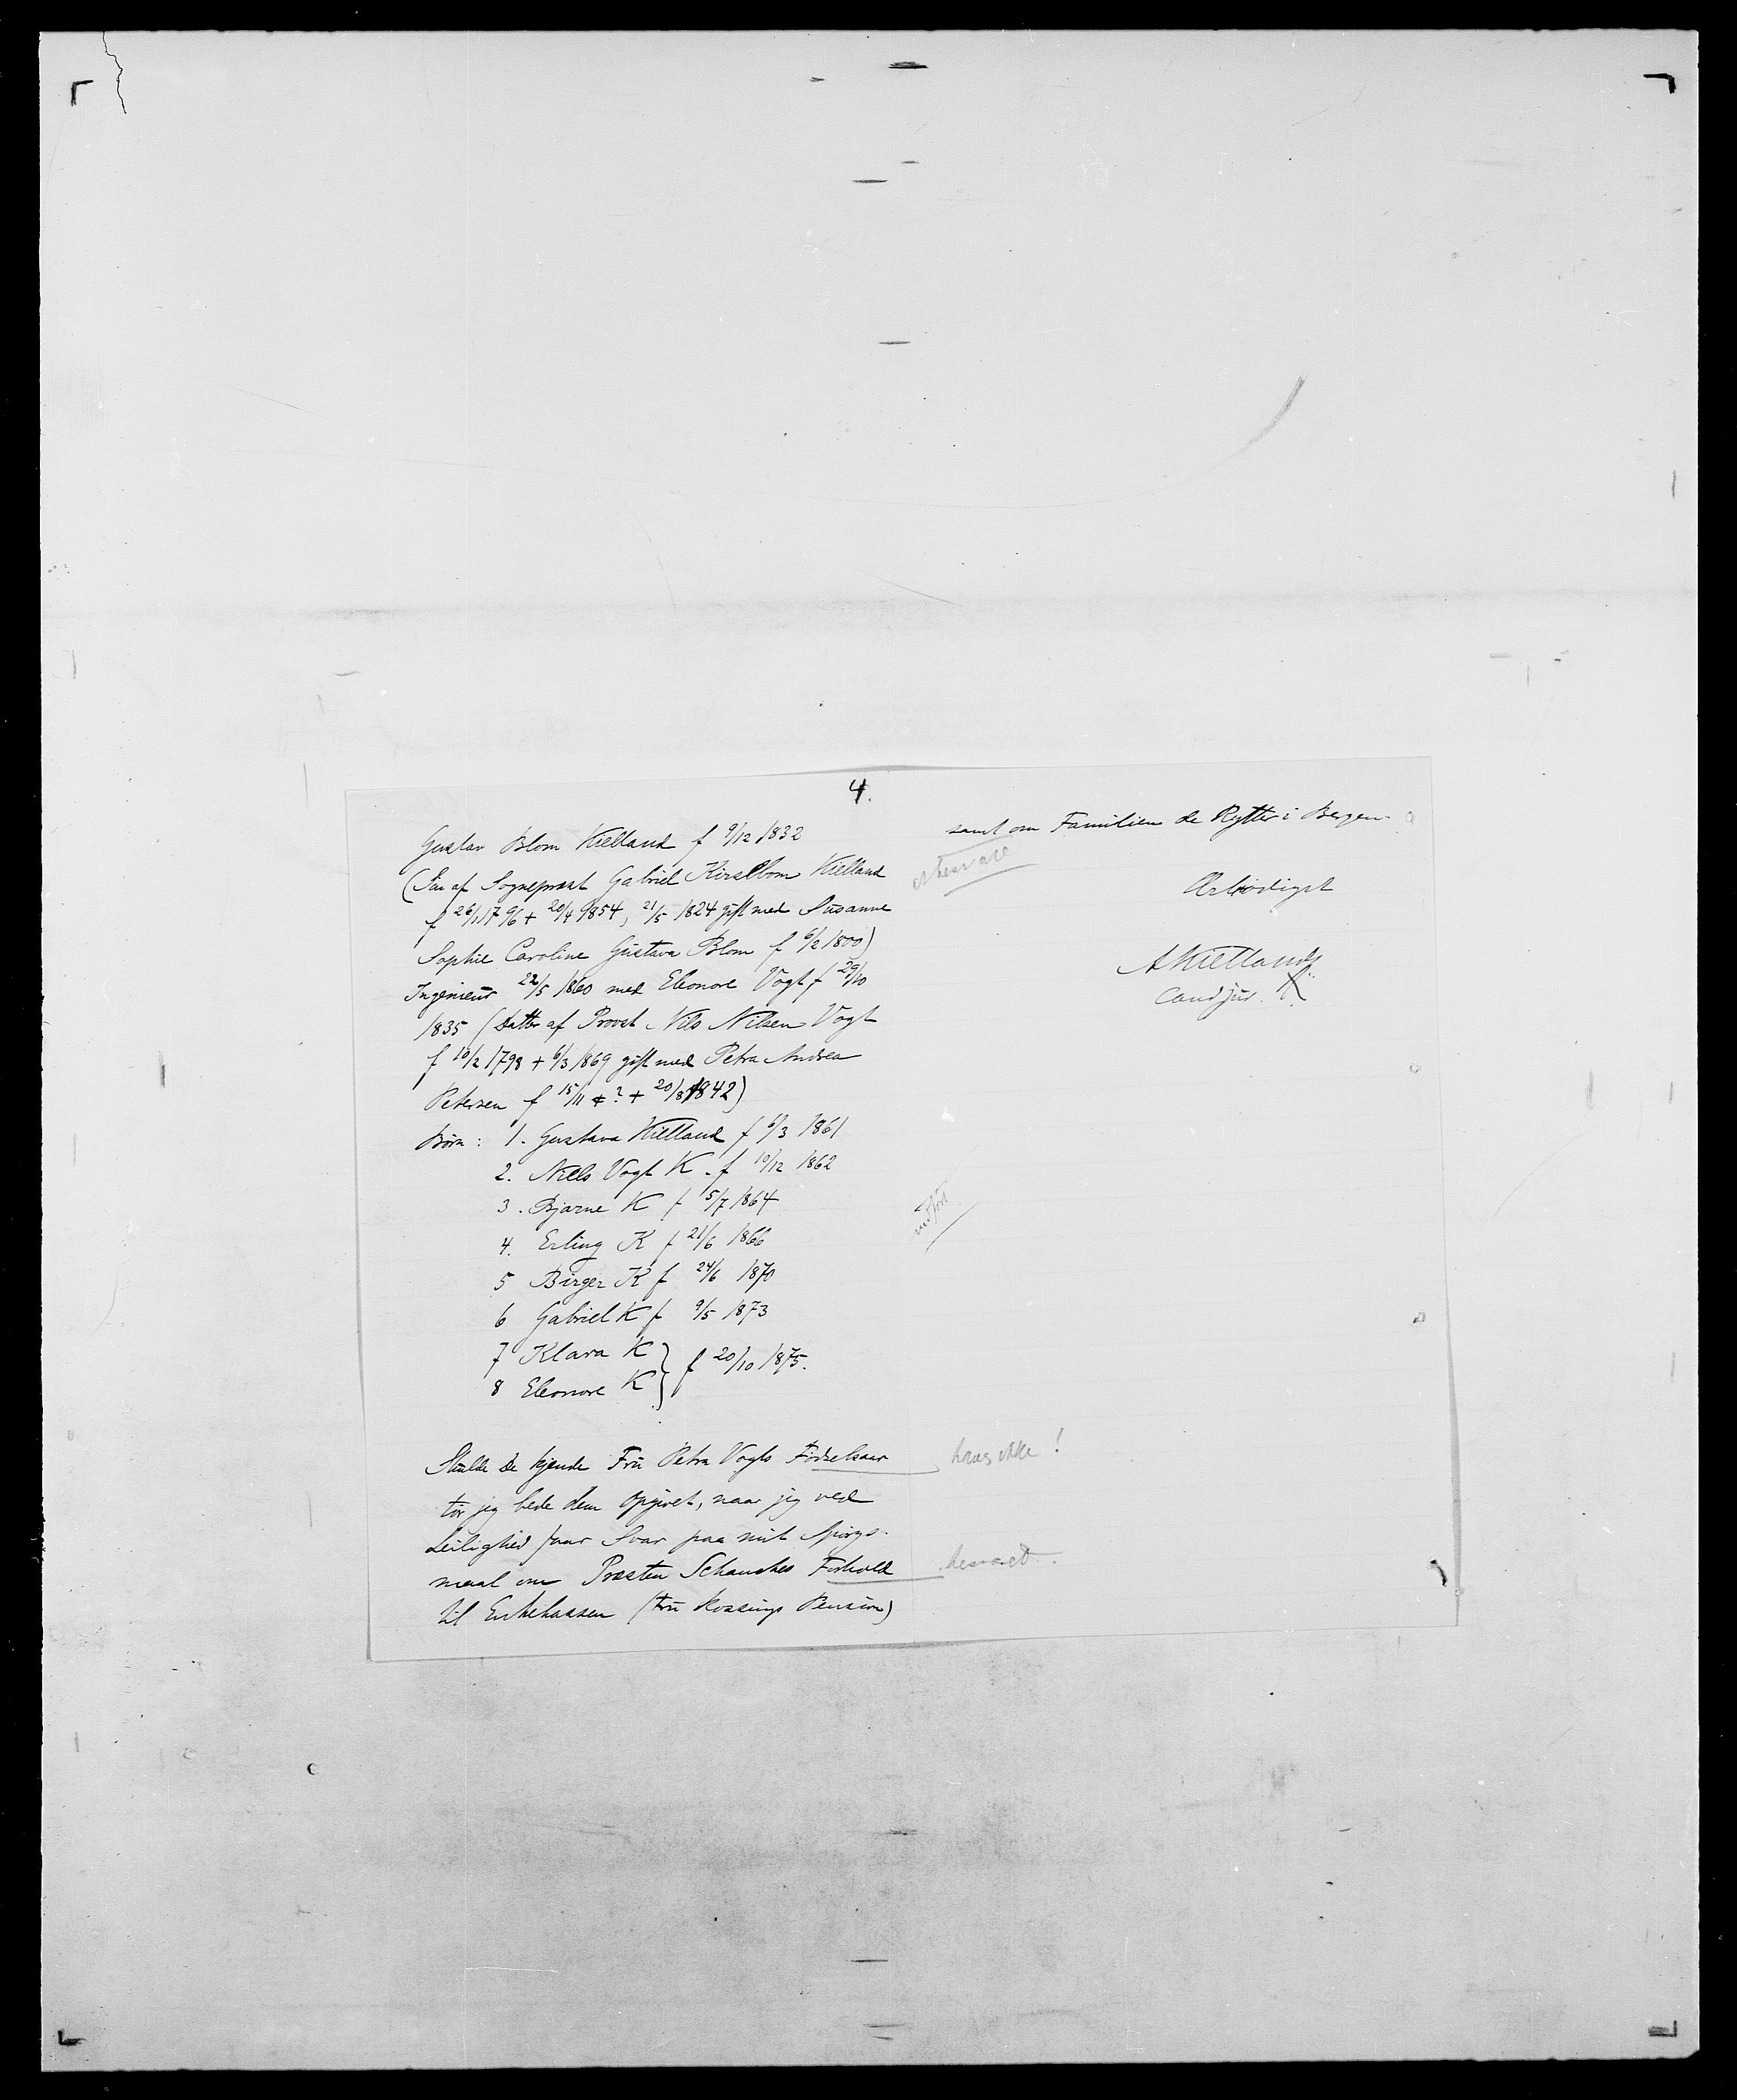 4.
Gustav Blom Kielland f 9/12 1832
(Søn af Sogneprest Gabriel Kirsebom Kielland
f 26/1 1796 + 20/4 1854, 21/5 1824 gift med Susanne
Sophie Caroline Gustava Blom f 6/2 1800)
Ingenieur 22/5 1860 med Eleonore Vogt f 29/10
1835 (Datter af Provst Nils Nilsen Vogt
f 10/2 1798 + 6/3 1869 gift med Petra Andrea
Petersen f 15/11 ? + 20/8 1842)
Børn: 1. Gustava Kielland f 6/3 1861
2. Niels Vogt K. f 10/12 1862
3. Bjarne K f 5/7 1864
4. Erling K f 21/6 1866
5 Birger K f 24/6 1870
6 Gabriel K f 9/5 1873
7 Klara K
8 Eleonore K } f 20/10 1875.
Skulde De kjende Fru Petra Vogts Fødselsaar
tør jeg bede dem opgivet, naar jeg ved
Leilighed faar Svar paa mit Spørgs-
maal om Presten Schanches Forhold
til Enkekassen (Fru Rossings Pension)
haves ikke!
besvaret.
samt om Familien de Rytter i Bergen.
Ærbødigst
AKielland
Cand jur.